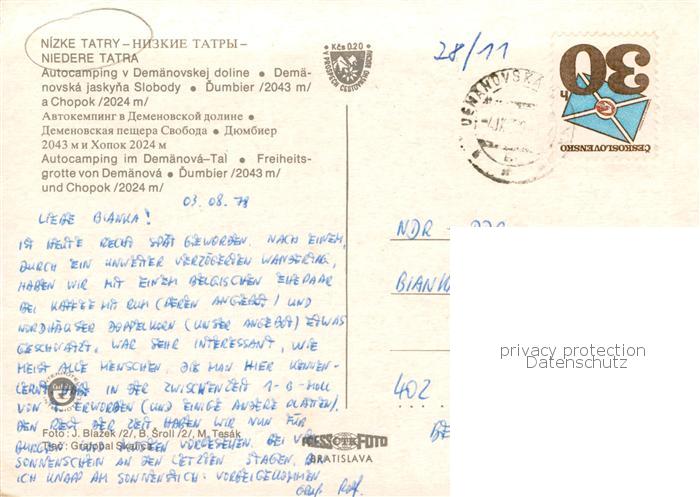 NÍZKE TATRY – НИЗКИЕ ТАТРЫ –
NIEDERE TATRA
Autocamping v Demänovskej doline • Demä-
novská jaskyňa Slobody • Ďumbier /2043 m/
a Chopok /2024 m/
Автокемпинг в Деменовской долине •
Деменовская пещера Свобода • Дюмбиер
2043 м и Хопок 2024 м
Autocamping im Demänová–Tal • Freiheits-
grotte von Demänová • Ďumbier /2043 m/
und Chopok /2024 m/
Kčs 0.20
V PROSPECH CESTOVNÉHO RUCHU
28/11
DEMÄNOVSKÁ
30
ČESKOSLOVENSKO
03.08.78
LIEBE BIANKA!
IST HEUTE RECHT SPÄT GEWORDEN. NACH EINEM,
DURCH EIN UNWETTER VERZÖGERTEN WANDERUNG,
HABEN WIR MIT EINEM BELGISCHEN EHEPAAR
BEI KAFFEE MIT RUM (DEREN ANGEBOT) UND
NORDHÄUSER DOPPELKORN (UNSER ANGEBOT) ETWAS
GESCHWATZT. WAR SEHR INTERESSANT, WIE
MEIST ALLE MENSCHEN, DIE MAN HIER KENNEN-
LERNT. IN DER ZWISCHENZEIT 1-B-MOLL
VON ERWORBEN (UND EINIGE ANDERE PLATTEN).
DEN REST DER ZEIT HABEN WIR NUN FÜR
UND VORGESEHEN. BEI
SONNENSCHEIN AN DEN LETZTEN TAGEN,
ICH KNAPP AM SONNENSTICH VORBEIGEKOMMEN
Gruß Ralf
Foto: J. Blažek /2/, B. Šroll /2/, M. Tesák
Tlač: Grafobal Skalica
PRESSFOTO
BRATISLAVA
NDR
402
privacy protection
Datenschutz